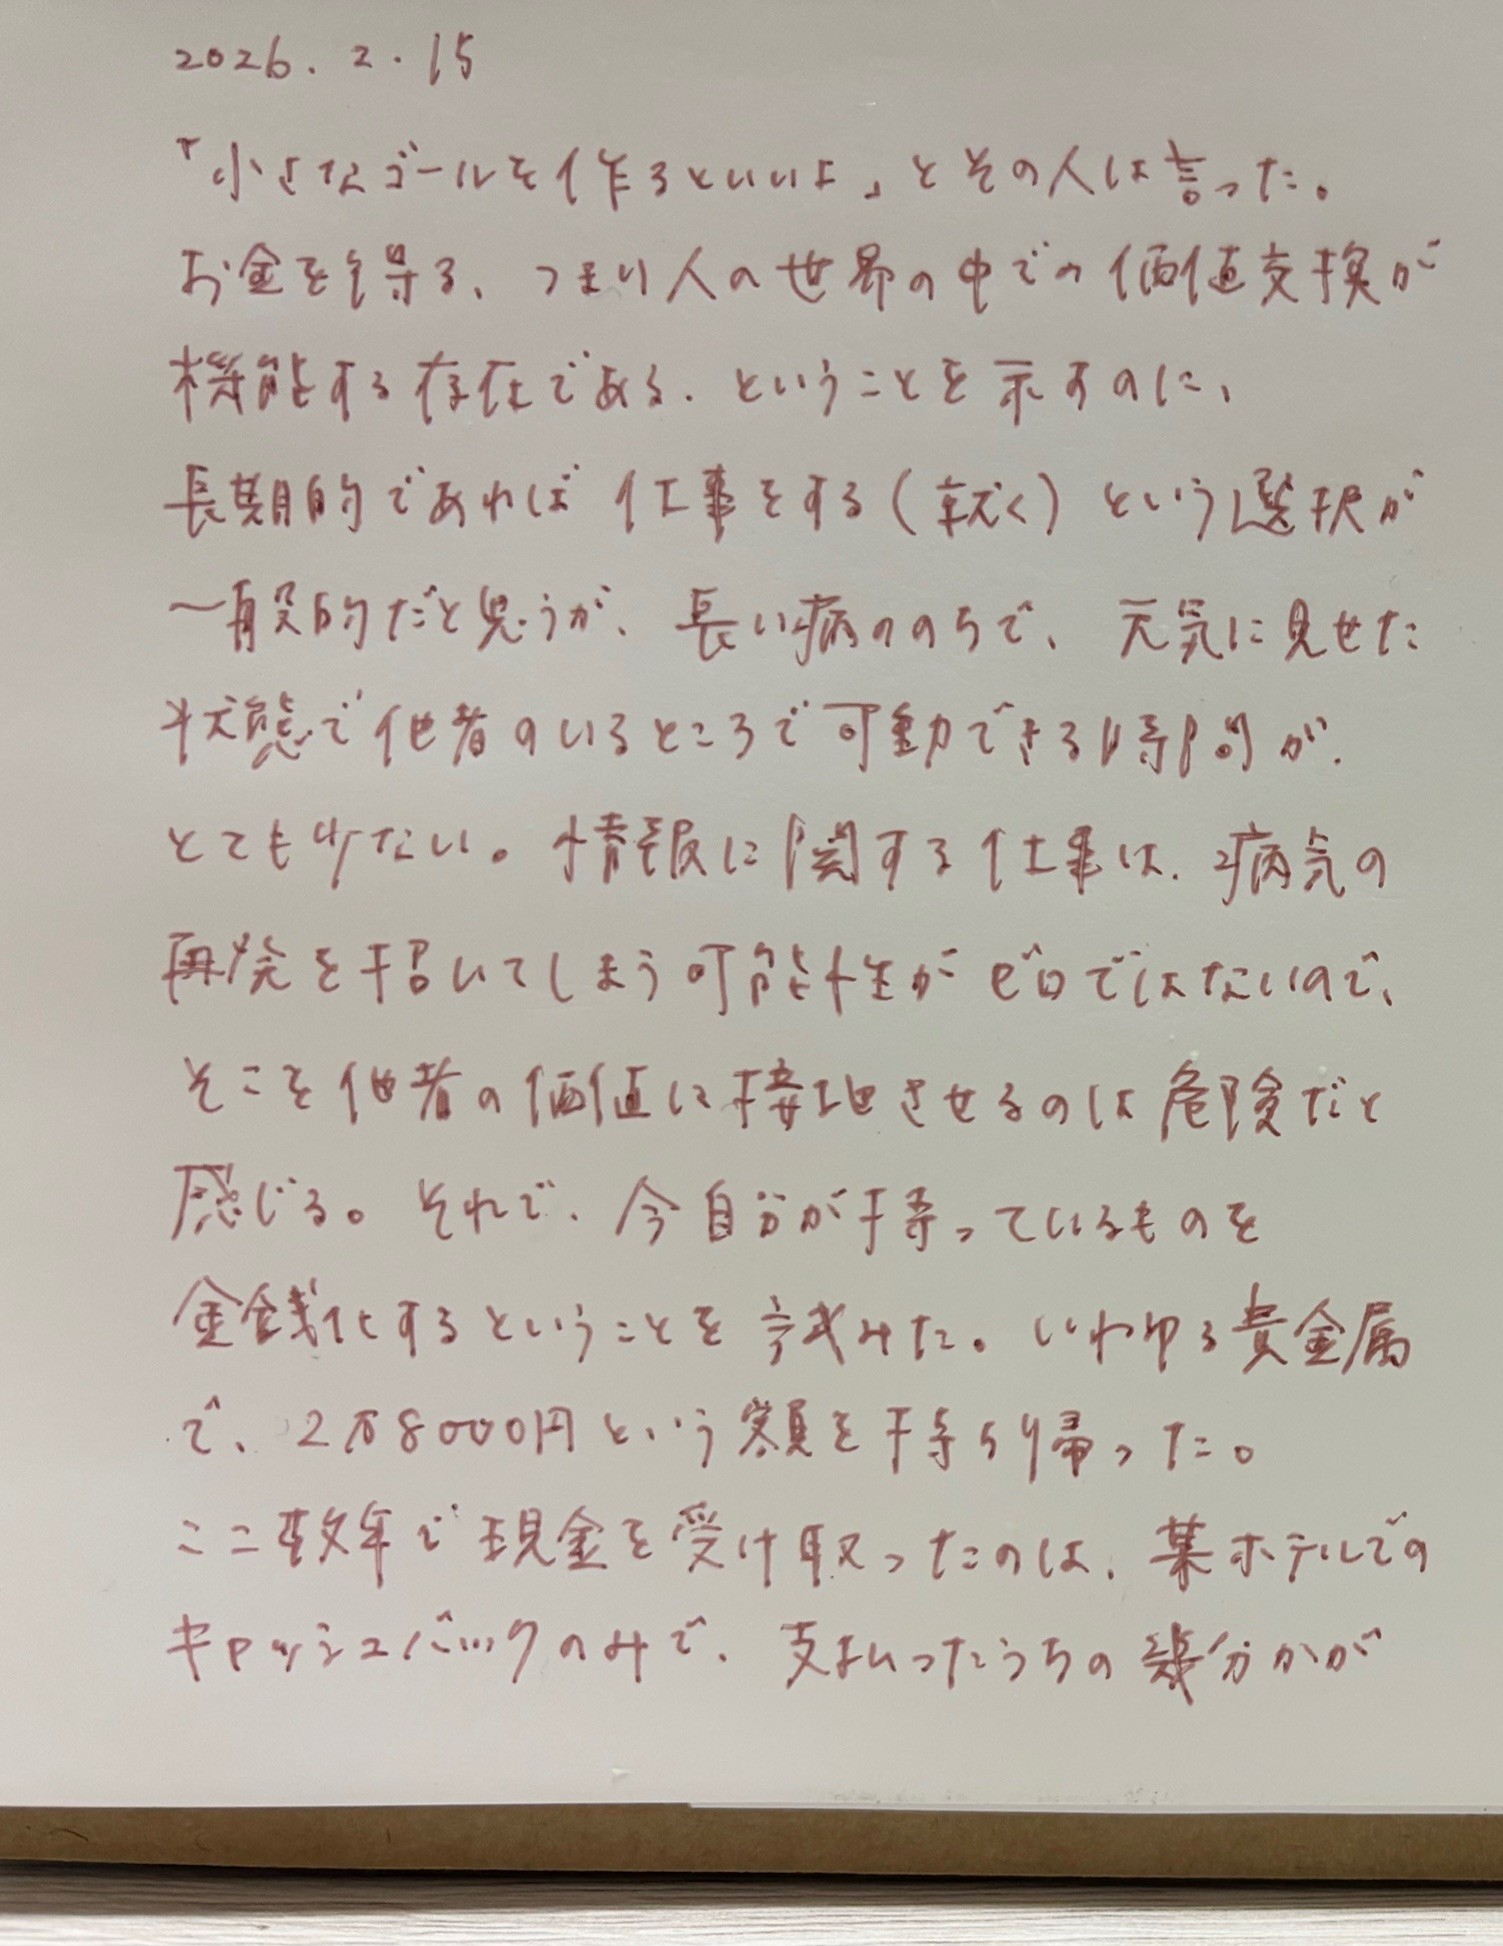 2026.2.15
「小さなゴールを作るといいよ」とその人は言った。
お金を得る、つまり人の世界の中での価値交換が
機能する存在である、ということを示すのに、
長期的であれば仕事をする(就く)という選択が
一般的だと思うが、長い病ののちで、元気に見せた
状態で他者のいるところで可動できる時間が、
とても少ない。情報に関する仕事は、病気の
再発を招いてしまう可能性がゼロではないので、
そこを他者の価値に接地させるのは危険だと
感じる。それで、今自分が持っているものを
金銭化するということを試みた。いわゆる貴金属
で、2万8000円という額を持ち帰った。
ここ数年で現金を受け取ったのは、某ホテルでの
キャッシュバックのみで、支払ったうちの幾分かが